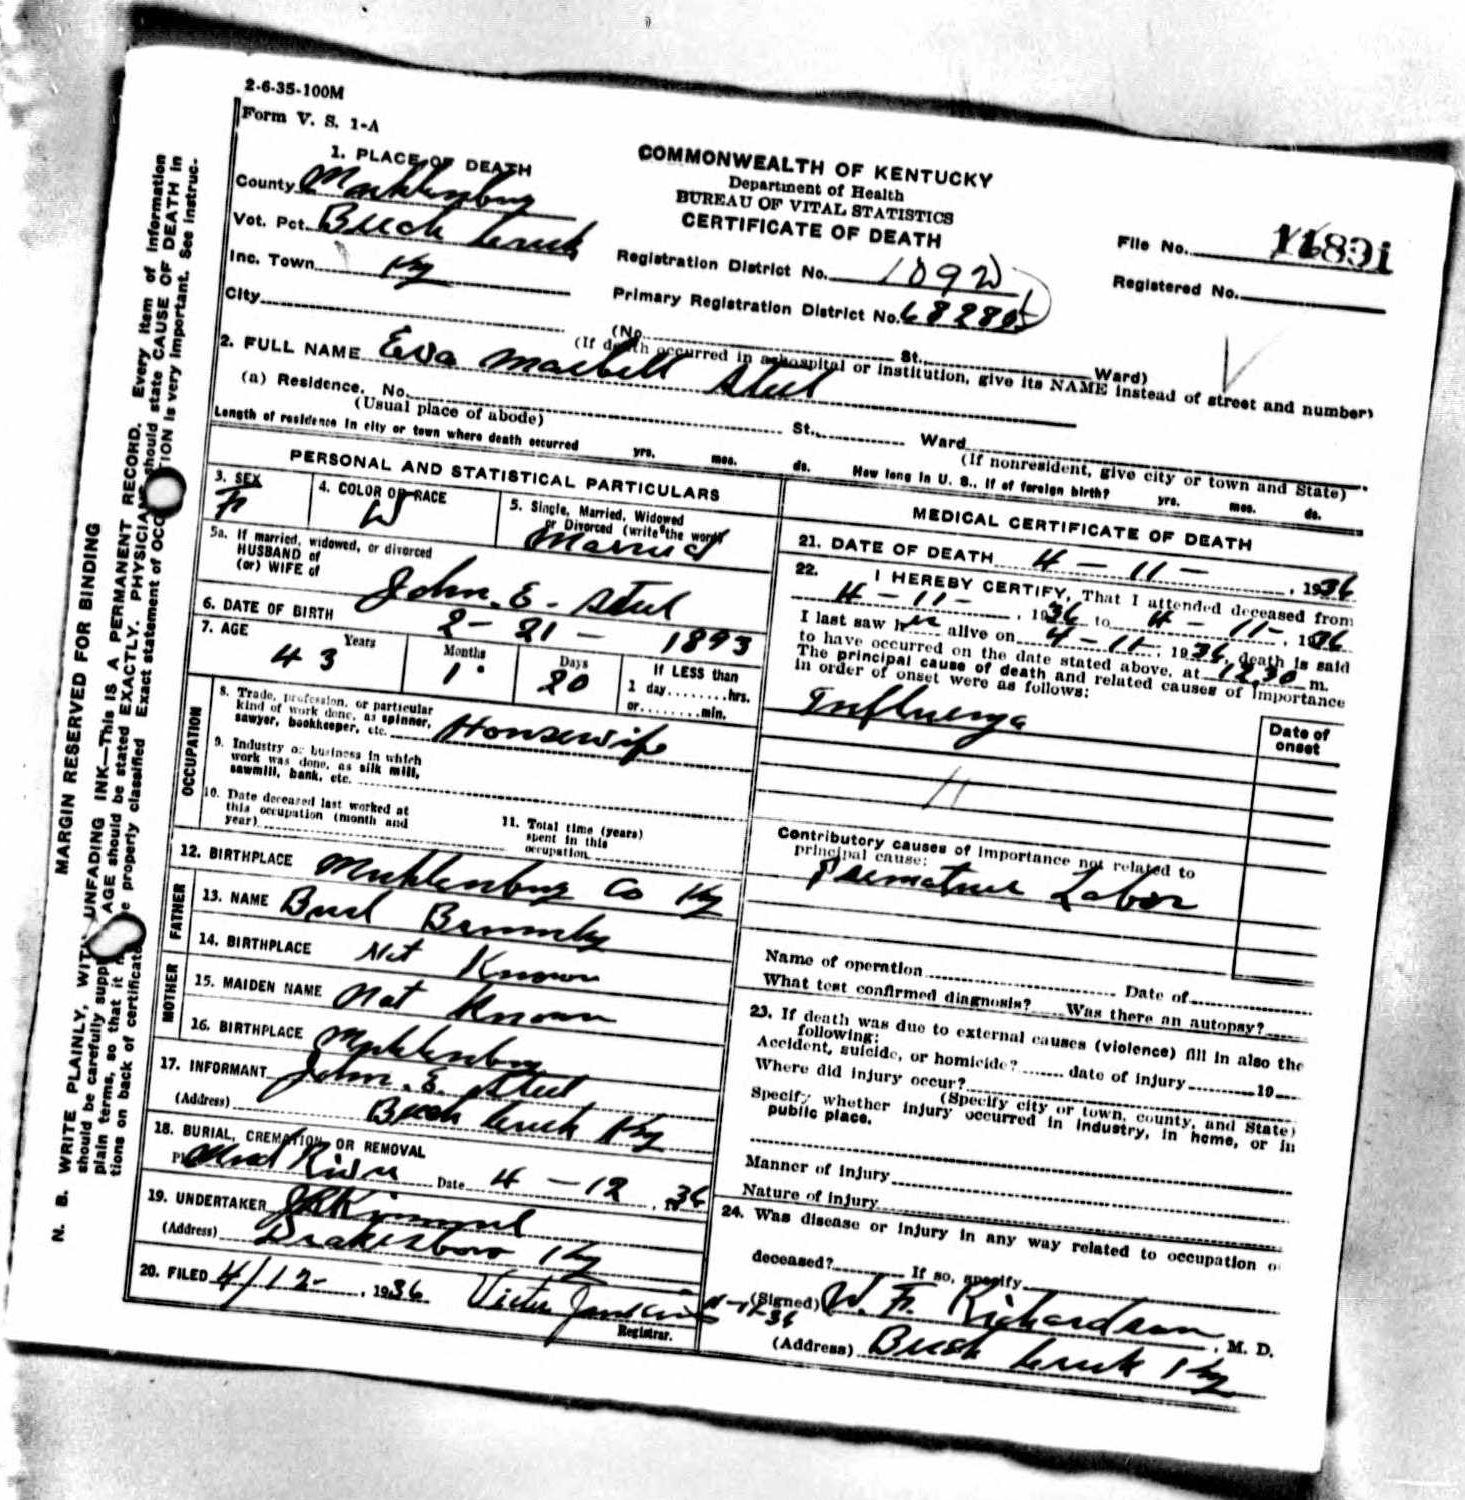 2-6-35-100M
Form V. S. 1-A
COMMONWEALTH OF KENTUCKY
Department of Health
BUREAU OF VITAL STATISTICS
CERTIFICATE OF DEATH
1. PLACE OF DEATH
County Muhlenburg
Vot. Pct. Beech Creek
Inc. Town Ky
City
File No. 11831
Registered No.
Registration District No. 1092
Primary Registration District No. 68280
(No. St., Ward)
(If death occurred in a hospital or institution, give its NAME instead of street and number)
2. FULL NAME Eva Maebell Steel
(a) Residence. No. St., Ward
(Usual place of abode) (If nonresident, give city or town and State)
Length of residence in city or town where death occurred yrs. mos. ds. How long in U. S., if of foreign birth? yrs. mos. ds.
PERSONAL AND STATISTICAL PARTICULARS
3. SEX F
4. COLOR OR RACE W
5. Single, Married, Widowed or Divorced (write the word) Married
5a. If married, widowed, or divorced
HUSBAND of
(or) WIFE of John. E. Steel
6. DATE OF BIRTH 2-21-1893
7. AGE Years 43 Months 1 Days 20 If LESS than
1 day........hrs.
or........min.
OCCUPATION
8. Trade, profession, or particular
kind of work done, as spinner,
sawyer, bookkeeper, etc. Housewife
9. Industry or business in which
work was done, as silk mill,
sawmill, bank, etc.
10. Date deceased last worked at
this occupation (month and
year)
11. Total time (years)
spent in this
occupation
12. BIRTHPLACE Muhlenburg Co Ky
FATHER
13. NAME
14. BIRTHPLACE Not Known
MOTHER
15. MAIDEN NAME Not Known
16. BIRTHPLACE Muhlenburg
17. INFORMANT John. E. Steel
(Address) Beech Creek Ky
18. BURIAL, CREMATION OR REMOVAL
Mud River Date 4-12, 1936
19. UNDERTAKER Kimmel
(Address) Drakesboro Ky
20. FILED 4/12-, 1936
Registrar.
MEDICAL CERTIFICATE OF DEATH
21. DATE OF DEATH 4-11-, 1936
22. I HEREBY CERTIFY, That I attended deceased from
4-11-, 1936 to 4-11-, 1936
I last saw her alive on 4-11-, 1936, death is said
to have occurred on the date stated above, at 12.30 m.
The principal cause of death and related causes of importance
in order of onset were as follows:
Date of onset
Influenza
11
Contributory causes of importance not related to
principal cause:
Premature Labor
Name of operation Date of
What test confirmed diagnosis? Was there an autopsy?
23. If death was due to external causes (violence) fill in also the
following:
Accident, suicide, or homicide? date of injury 19
Where did injury occur?
(Specify city or town, county, and State)
Specify whether injury occurred in industry, in home, or in
public place.
Manner of injury
Nature of injury
24. Was disease or injury in any way related to occupation o
deceased? If so, specify
(Signed) W. F. Richardson, M. D.
(Address) Beech Creek Ky
MARGIN RESERVED FOR BINDING
N. B. WRITE PLAINLY, WITH UNFADING INK—This is A PERMANENT RECORD. Every item of information
should be carefully supp AGE should be stated EXACTLY. PHYSICIAN should state CAUSE OF DEATH in
plain terms, so that it properly classified Exact statement of OCC TION is very important. See instruc-
tions on back of certificate